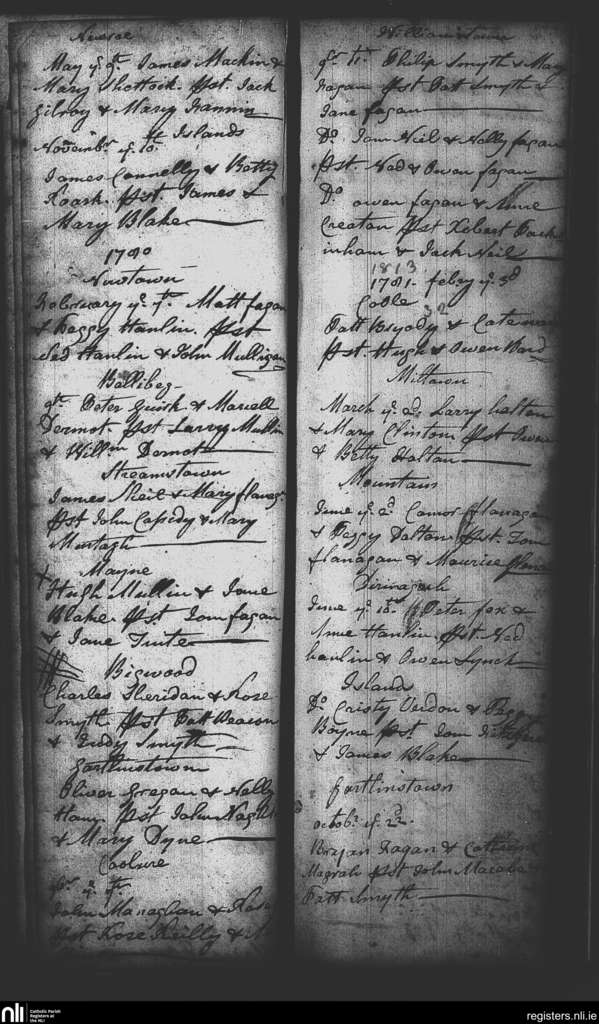 May ye 9th. James Mackin &
Mary Shottock. Pst. Jack
Gilroy & Mary Fannin
Islands
Novembr ye 10.
James Connelly & Betty
Roark. Pst. James &
Mary Blake
1780
Newtown
February ye Matt fagan
& Peggy Hanlin. Pst
Ned Hanlin & John Mulligan
Ballibeg
9th. Peter Quirk & Mariell
Dermot Pst Larry Mullin
& Willm Dermot
Streamstown
James Neil & Mary flanag
Pst John Casedy & Mary
Murtagh
Mayne
Hugh Mullin & Jane
Blake Pst Tom fagan
& Jane Tuite
Bigwood
Charles Sheridan & Rose
Smyth Pst Patt Deacon
& Judy Smyth
Gartlinstown
Oliver Gregan & Nelly
Pst John
& Mary Dyne
Coolure
John Managhan &
Pst Rose Reilly &
Williamstown
Philip Smyth & Mary
Fagan Pst Patt Smyth &
Jane fagan
Do. Tom Neil & Nelly fagan
Pst. Ned & Owen fagan
Do owen fagan & Anne
Creaton Pst
inham & Jack Neil
1813
1781. febry ye 3d
Coole
32
Patt &
Pst. Hugh & Owen
Miltown
March ye Larry Dalton
& Mary Clinton Pst Owen
& Betty Dalton
Mountain
June ye 2d Connor flanagan
& Peggy Dalton Pst. Tom
flanagan & Maurice
June ye 18th Peter fox &
Anne Hanlin. Pst. Ned
hanlin & Owen Lynch
Island
Do Cristy Verdon & Peggy
Boyne Pst. Tom
& James Blake
Gartlinstown
octobr ye 22.
Bryan Fagan &
Magrah Pst John
Patt Smyth
nli
Catholic Parish
Registers at
the NLI
registers.nli.ie